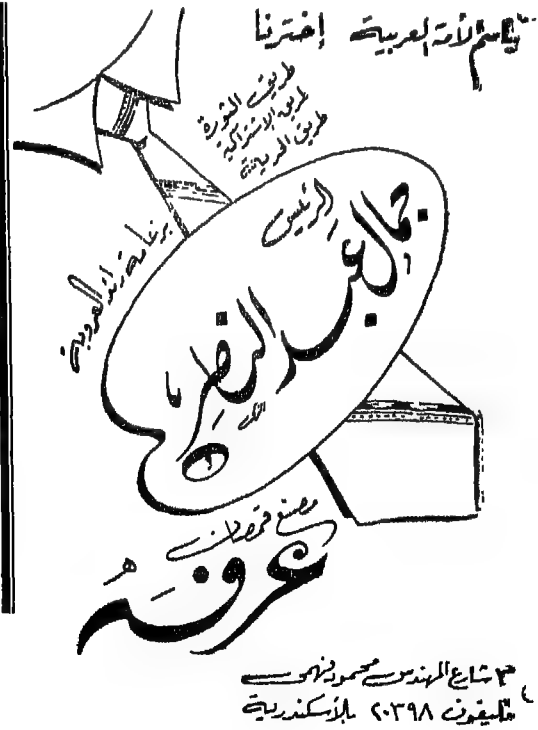 باسم الأمة العربية إخترنا
طريق الثورة
طريق الإشتراكية
طريق الحرية
بزعامة رائد العروبة
الرئيس
جمال عبد الناصر
مصنع قمصان
عرفه
٣ شارع المهندس محمود فهمى
تليفون ٢٠٣٩٨ بالأسكندرية